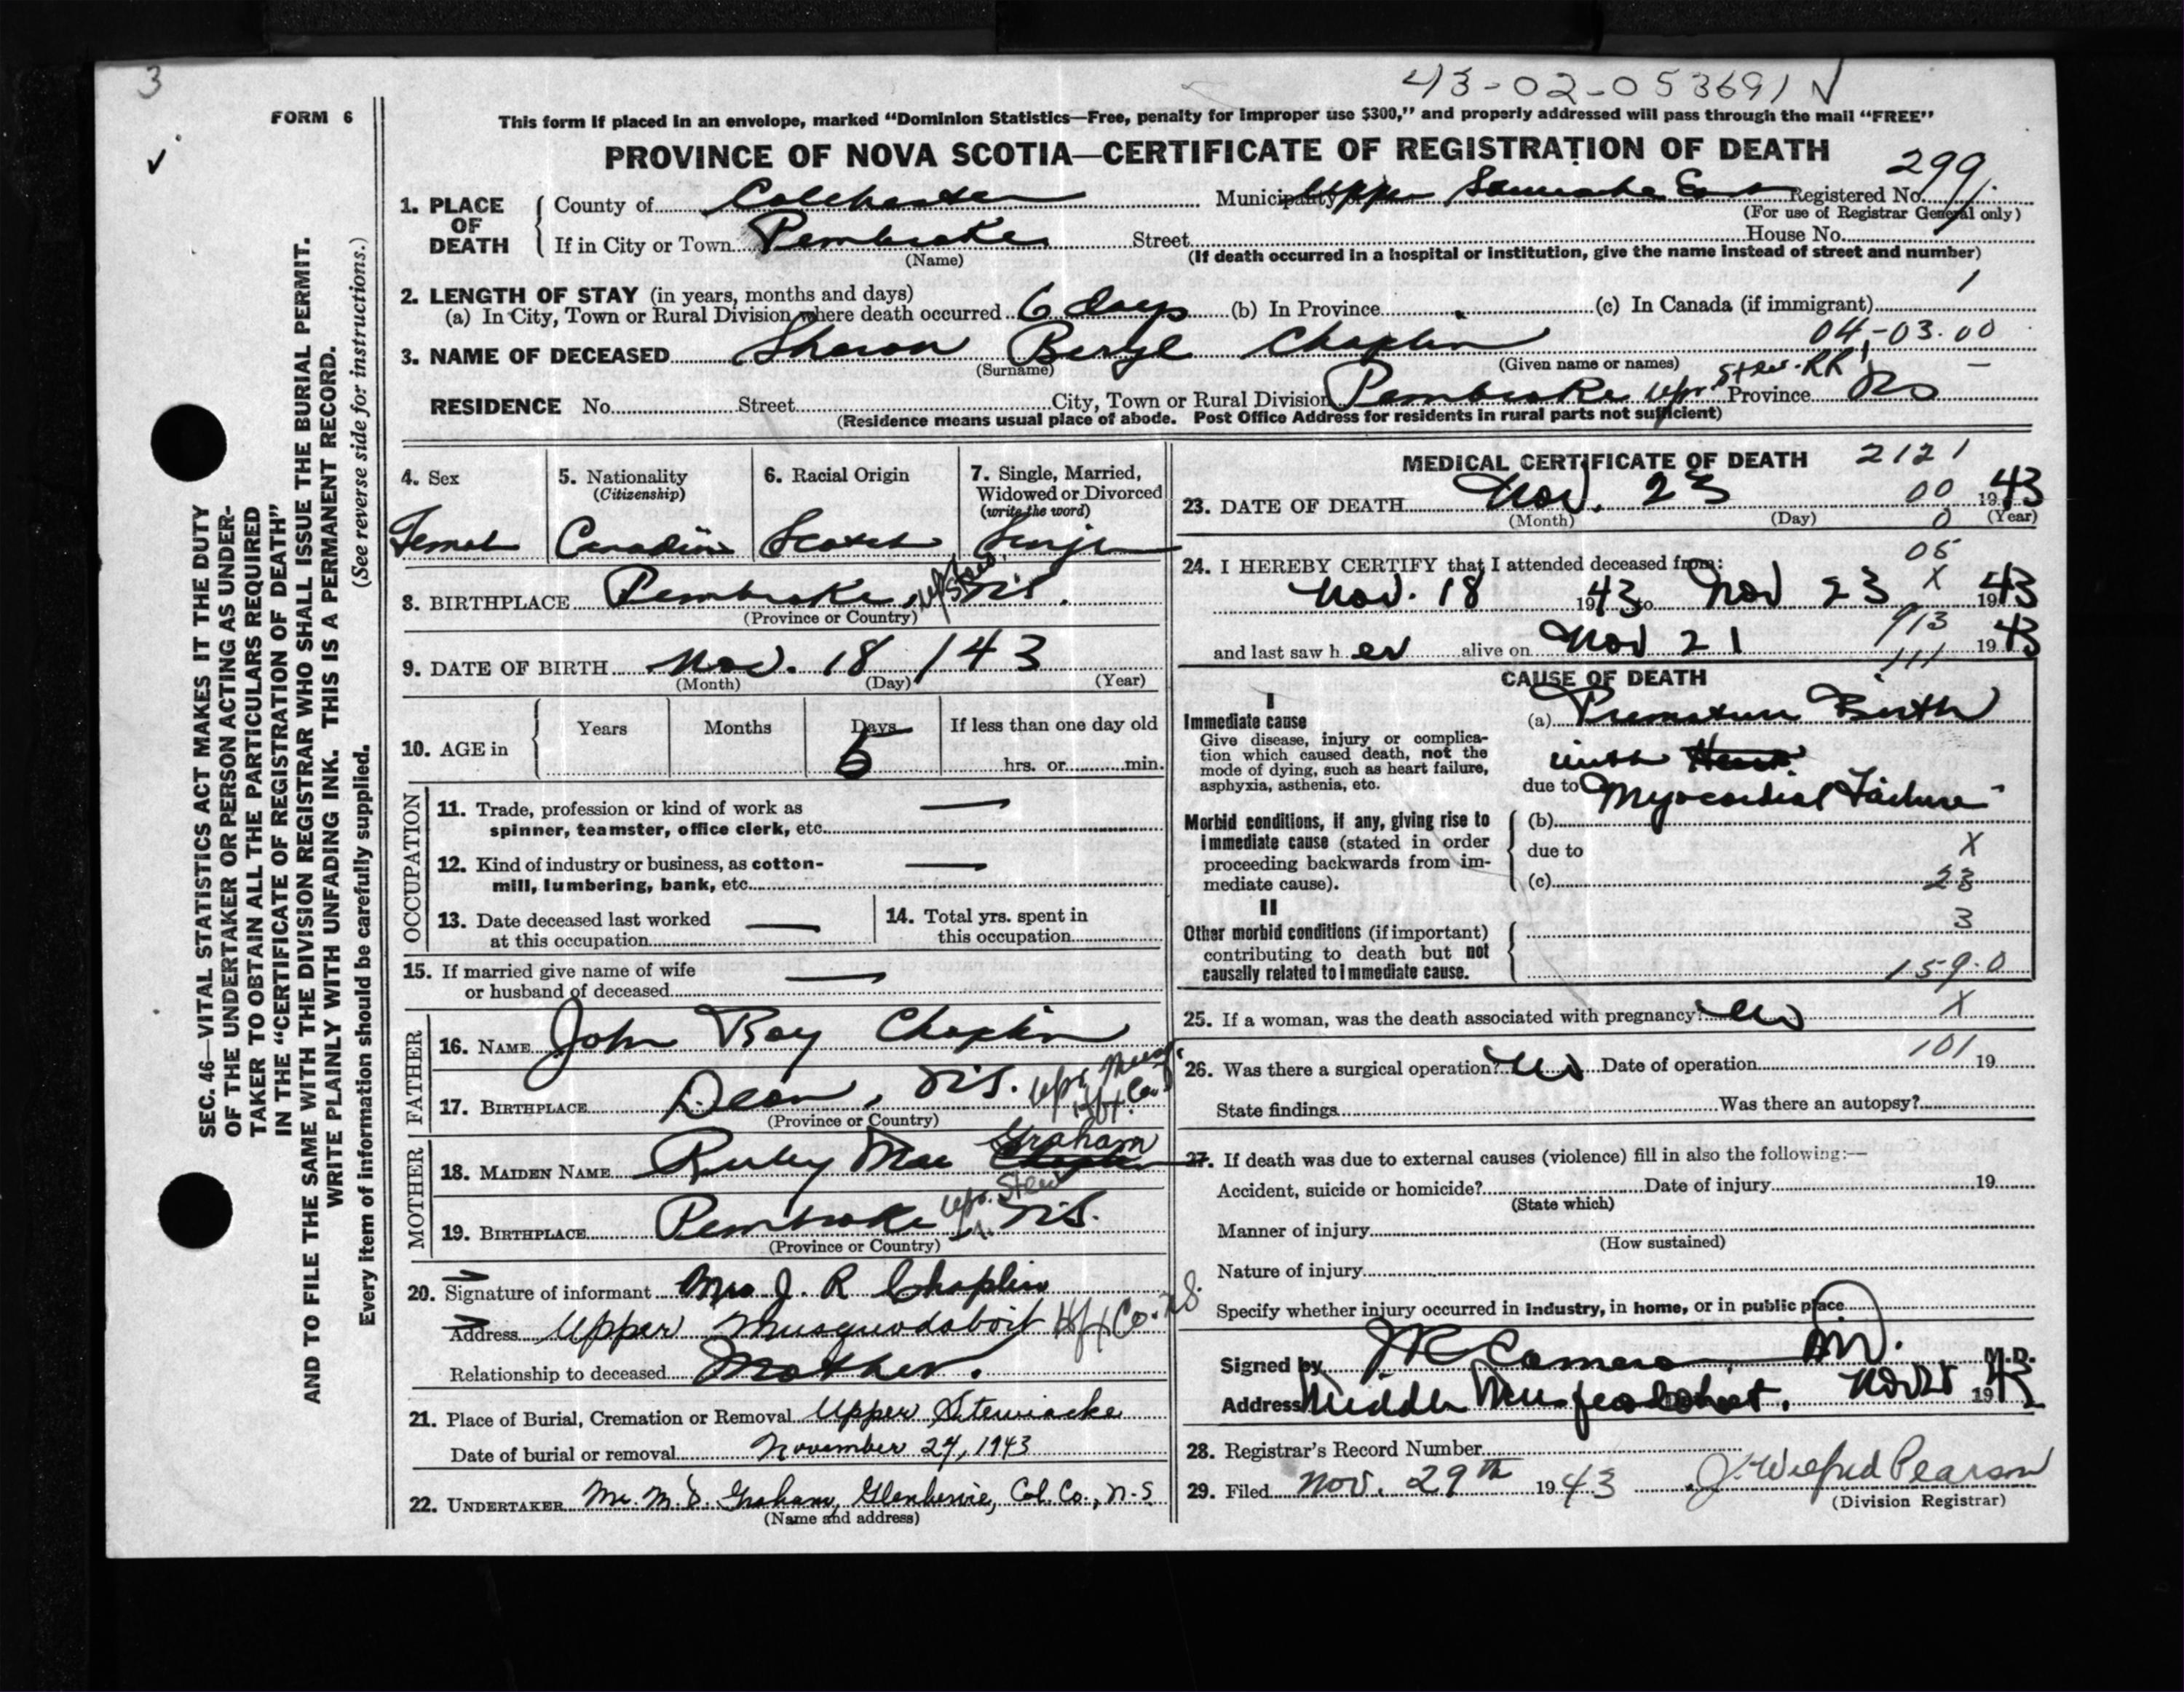 3
43-02-053691 ✓
FORM 6
✓
This form if placed in an envelope, marked “Dominion Statistics—Free, penalty for improper use $300,” and properly addressed will pass through the mail “FREE”
PROVINCE OF NOVA SCOTIA—CERTIFICATE OF REGISTRATION OF DEATH
299
1. PLACE OF DEATH
County of Colchester Municipality Upper East Registered No.
(For use of Registrar General only)
If in City or Town Pembroke Street House No.
(Name) (If death occurred in a hospital or institution, give the name instead of street and number)
1
2. LENGTH OF STAY (in years, months and days)
(a) In City, Town or Rural Division where death occurred 6 days (b) In Province (c) In Canada (if immigrant)
04-03.00
3. NAME OF DECEASED Sharon Beryl Chaplin
(Surname) (Given name or names)
Stew. RR1
RESIDENCE No. Street City, Town or Rural Division Pembroke Upr. Province NS
(Residence means usual place of abode. Post Office Address for residents in rural parts not sufficient)
4. Sex
Female
5. Nationality
(Citizenship)
Canadian
6. Racial Origin
Scotch
7. Single, Married,
Widowed or Divorced
(write the word)
Single
8. BIRTHPLACE Pembroke, Up Stew. N.S.
(Province or Country)
9. DATE OF BIRTH Nov. 18 / 43
(Month) (Day) (Year)
10. AGE in
Years Months Days If less than one day old
5 hrs. or min.
OCCUPATION
11. Trade, profession or kind of work as
spinner, teamster, office clerk, etc. —
12. Kind of industry or business, as cotton-
mill, lumbering, bank, etc. —
13. Date deceased last worked
at this occupation —
14. Total yrs. spent in
this occupation
15. If married give name of wife
or husband of deceased —
FATHER
16. NAME John Roy Chaplin
17. BIRTHPLACE Dean, N.S. Upr Musq. Hfx Co.
(Province or Country)
MOTHER
Graham
18. MAIDEN NAME Ruby Mae Chaplin
19. BIRTHPLACE Pembroke Upr. Stew N.S.
(Province or Country)
20. Signature of informant Mrs J. R Chaplin
Address Upper Musquodoboit Hfx Co. N.S.
Relationship to deceased Mother.
21. Place of Burial, Cremation or Removal Upper Stewiacke
Date of burial or removal November 24, 1943
22. UNDERTAKER Mr. M. D. Graham, Glenbervie, Col. Co., N.S.
(Name and address)
MEDICAL CERTIFICATE OF DEATH 2121
23. DATE OF DEATH Nov. 23 00 1943
(Month) (Day) 0 (Year)
05
24. I HEREBY CERTIFY that I attended deceased from:
Nov. 18 1943 to Nov 23 X 1943
913
and last saw her alive on Nov 21 1943
111
CAUSE OF DEATH
I
Immediate cause
Give disease, injury or complica-
tion which caused death, not the
mode of dying, such as heart failure,
asphyxia, asthenia, etc.
(a) Premature Birth
with Heart
due to Myocardial Failure
Morbid conditions, if any, giving rise to
immediate cause (stated in order
proceeding backwards from im-
mediate cause).
(b)
due to X
(c) 23
II
Other morbid conditions (if important)
contributing to death but not
causally related to immediate cause.
3
159.0
25. If a woman, was the death associated with pregnancy? No X
101
26. Was there a surgical operation? No Date of operation 19
State findings Was there an autopsy?
27. If death was due to external causes (violence) fill in also the following:—
Accident, suicide or homicide? Date of injury 19
(State which)
Manner of injury
(How sustained)
Nature of injury
Specify whether injury occurred in industry, in home, or in public place
Signed by Cameron M.D.
Address Middle Musquodoboit. Nov 1943
28. Registrar's Record Number
29. Filed Nov. 29th 1943 J. Wilfred Pearson
(Division Registrar)
SEC. 46—VITAL STATISTICS ACT MAKES IT THE DUTY
OF THE UNDERTAKER OR PERSON ACTING AS UNDER-
TAKER TO OBTAIN ALL THE PARTICULARS REQUIRED
IN THE “CERTIFICATE OF REGISTRATION OF DEATH”
AND TO FILE THE SAME WITH THE DIVISION REGISTRAR WHO SHALL ISSUE THE BURIAL PERMIT.
WRITE PLAINLY WITH UNFADING INK. THIS IS A PERMANENT RECORD.
Every item of information should be carefully supplied. (See reverse side for instructions.)